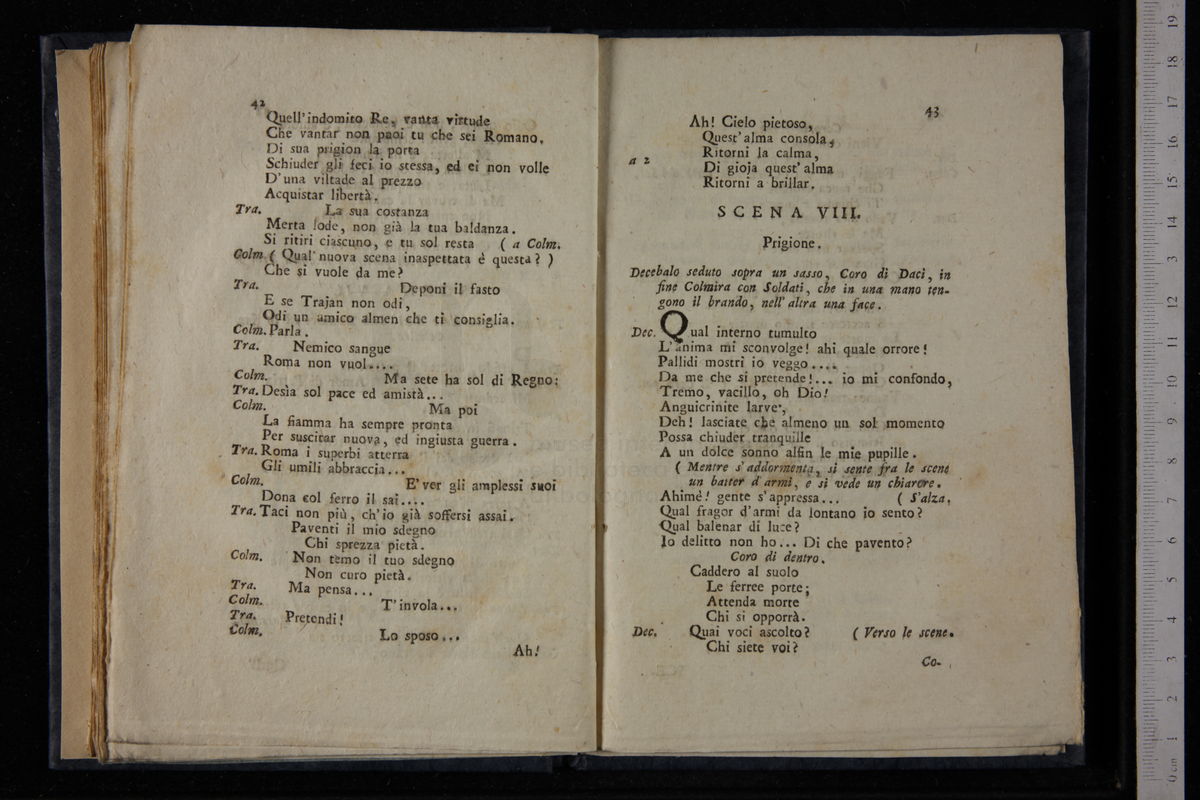 42
Quell'indomito Re, vanta virtude
Che vantar non puoi tu che sei Romano.
Di sua prigion la porta
Schiuder gli feci io stessa, ed ei non volle
D'una viltade al prezzo
Acquistar libertà.
Tra. La sua costanza
Merta lode, non già la tua baldanza.
Si ritiri ciascuno, e tu sol resta ( a Colm.
Colm ( Qual' nuova scena inaspettata è questa? )
Che si vuole da me?
Tra. Deponi il fasto
E se Trajan non odi,
Odi un amico almen che ti consiglia.
Colm. Parla.
Tra. Nemico sangue
Roma non vuol....
Colm. Ma sete ha sol di Regno:
Tra. Desìa sol pace ed amistà...
Colm. Ma poi
La fiamma ha sempre pronta
Per suscitar nuova, ed ingiusta guerra.
Tra. Roma i superbi atterra
Gli umili abbraccia...
Colm. E' ver gli amplessi suoi
Dona col ferro il sai....
Tra. Taci non più, ch'io già soffersi assai.
Paventi il mio sdegno
Chi sprezza pietà.
Colm. Non temo il tuo sdegno
Non curo pietà.
Tra. Ma pensa...
Colm. T'invola...
Tra. Pretendi!
Colm. Lo sposo...
Ah!
43
Ah! Cielo pietoso,
Quest'alma consola,
a 2 Ritorni la calma,
Di gioja quest'alma
Ritorni a brillar.
SCENA VIII.
Prigione.
Decebalo seduto sopra un sasso, Coro di Daci, in
fine Colmira con Soldati, che in una mano ten-
gono il brando, nell'altra una face.
Dec. Qual interno tumulto
L'anima mi sconvolge! ahi quale orrore!
Pallidi mostri io veggo....
Da me che si pretende!... io mi confondo,
Tremo, vacillo, oh Dio!
Anguicrinite larve,
Deh! lasciate che almeno un sol momento
Possa chiuder tranquille
A un dolce sonno alfin le mie pupille.
( Mentre s'addormenta, si sente fra le scene
un batter d'armi, e si vede un chiarore.
Ahimè! gente s'appressa... ( S'alza.
Qual fragor d'armi da lontano io sento?
Qual balenar di luce?
Io delitto non ho... Di che pavento?
Coro di dentro.
Caddero al suolo
Le ferree porte;
Attenda morte
Chi si opporrà.
Dec. Quai voci ascolto? ( Verso le scene.
Chi siete voi?
Co-